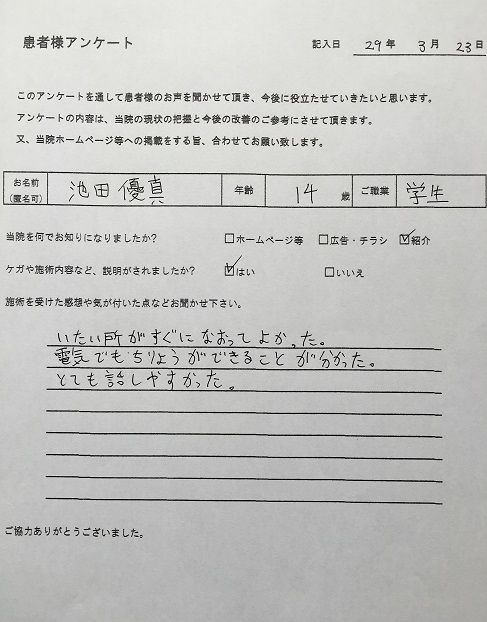 患者様アンケート
記入日 29年 3月 23日
このアンケートを通して患者様のお声を聞かせて頂き、今後に役立たせていきたいと思います。
アンケートの内容は、当院の現状の把握と今後の改善のご参考にさせて頂きます。
又、当院ホームページ等への掲載をする旨、合わせてお願い致します。
お名前(匿名可) 池田優真 年齢 14歳 ご職業 学生
当院を何でお知りになりましたか? □ホームページ等 □広告・チラシ ☑紹介
ケガや施術内容など、説明がされましたか? ☑はい □いいえ
施術を受けた感想や気が付いた点などお聞かせ下さい。
いたい所がすぐになおってよかった。
電気でもちりょうができることが分かった。
とても話しやすかった。
ご協力ありがとうございました。